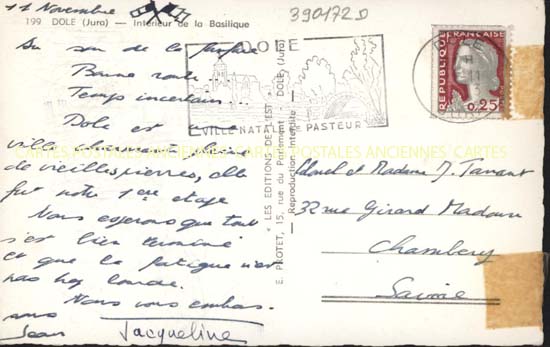 11 Novembre
390172D
199 DOLE (Jura) — Intérieur de la Basilique
Au son de la fanfare
Bonne route
Temps incertain...
Dole est une
ville
de vieilles pierres, elle
fut notre 1ère étape
Nous espérons que tout
s'est bien terminé
et que la fatigue n'est
pas trop lourde.
Nous vous embras-
sons
Jean Jacqueline
DOLE
VILLE NATALE DE PASTEUR
CARTES POSTALES ANCIENNES CARTES POSTALES ANCIENNES CARTES
« LES EDITIONS DE L'EST »
E. PROTET, 15, rue du Parlement - DOLE (Jura)
Reproduction Interdite
REPUBLIQUE FRANÇAISE
0,25
et Madame J. Tarrant
32 rue Girard Madoux
Chambéry
Savoie